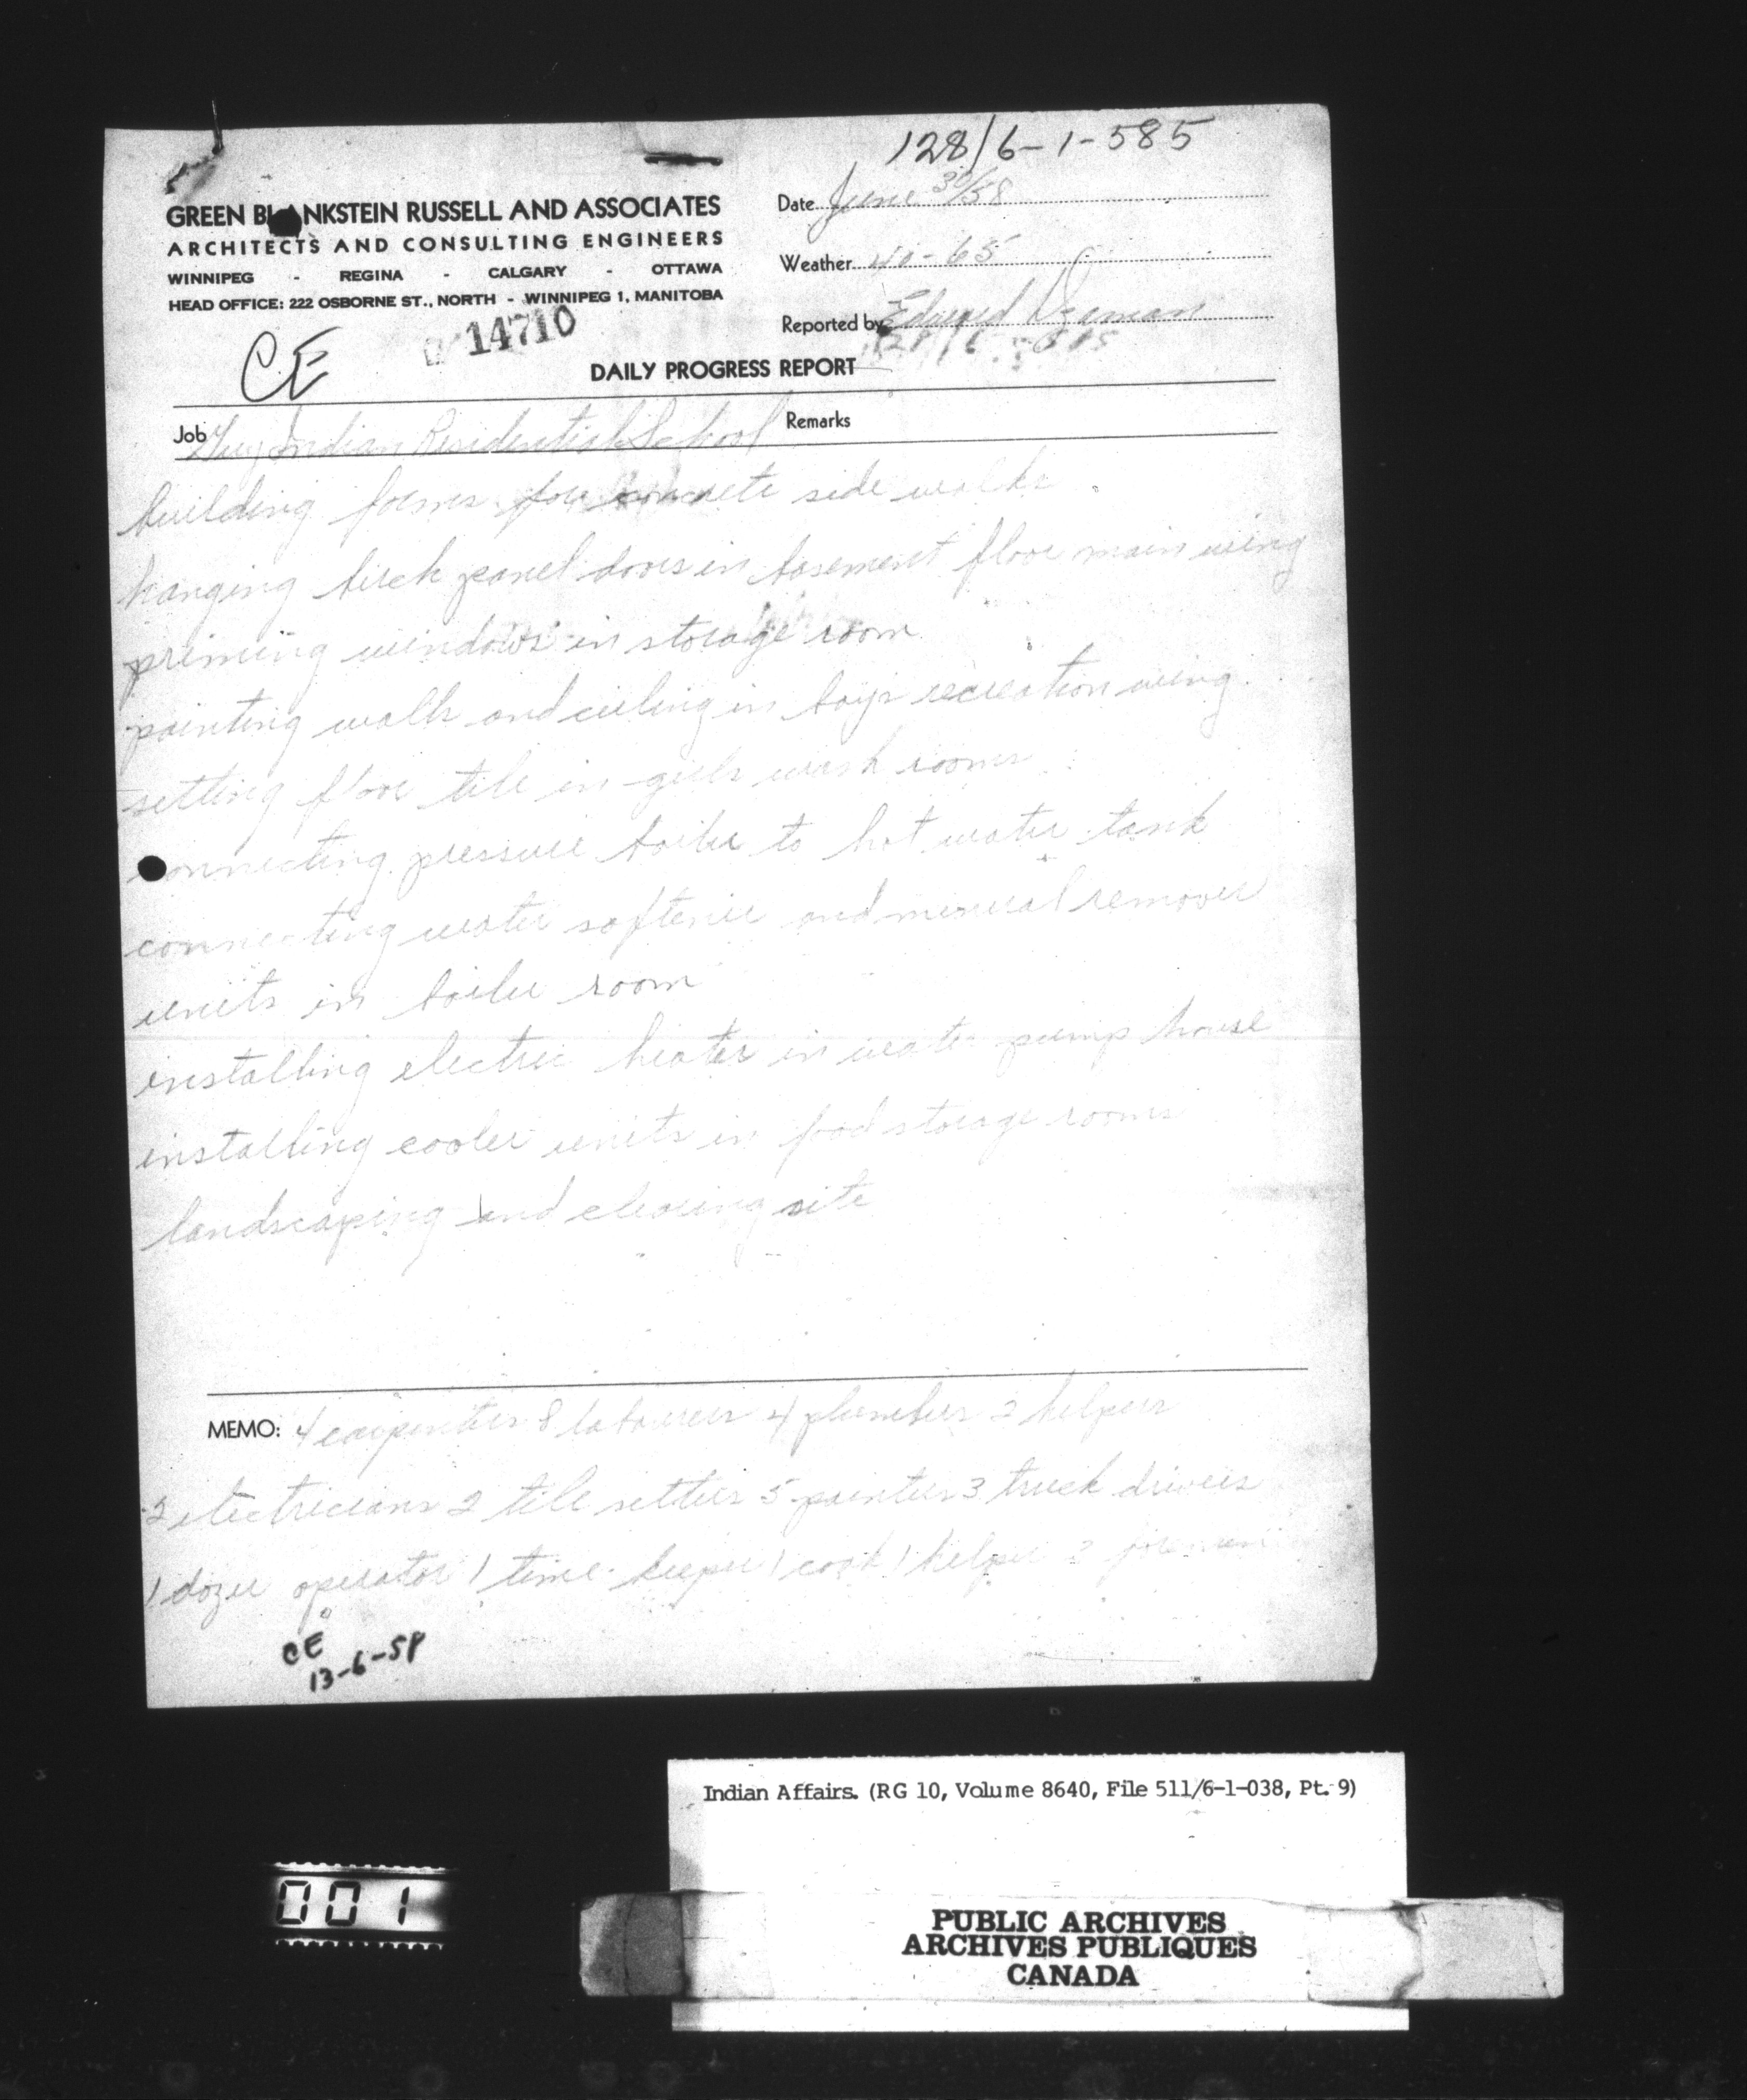 128/6-1-585
GREEN BLANKSTEIN RUSSELL AND ASSOCIATES
ARCHITECTS AND CONSULTING ENGINEERS
WINNIPEG - REGINA - CALGARY - OTTAWA
HEAD OFFICE: 222 OSBORNE ST., NORTH - WINNIPEG 1, MANITOBA
Date June /58
Weather 40-65
Reported by Edward
14710
CE
DAILY PROGRESS REPORT
Job Guy Indian Residential School Remarks
building forms for concrete side walks
hanging birch panel doors in basement floor main wing
priming windows in storage room
painting walls and ceiling in boys recreation wing
setting floor tile in girls wash rooms
connecting pressure boiler to hot water tank
connecting water softener and mineral remover
units in boiler room
installing electric heater in water pump house
installing cooler units in food storage rooms
landscaping and clearing site
MEMO: 4 carpenters 8 labourers 4 plumbers 2 helpers
2 electricians 2 tile setters 5 painters 3 truck drivers
1 dozer operator 1 time keeper 1 cook 1 helper 2 foremen
CE
13-6-58
Indian Affairs. (RG 10, Volume 8640, File 511/6-1-038, Pt. 9)
001
PUBLIC ARCHIVES
ARCHIVES PUBLIQUES
CANADA